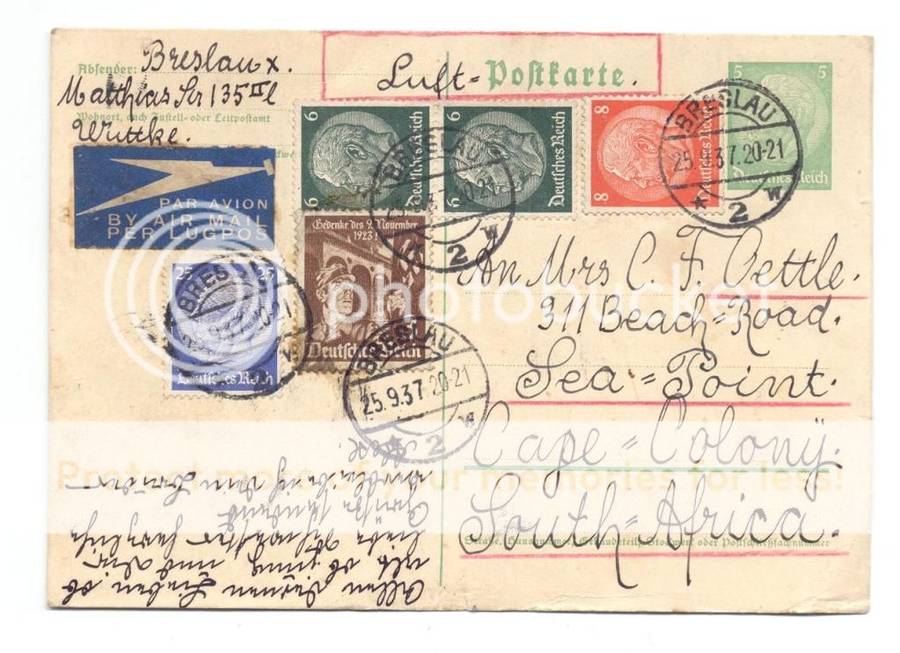 Absender: Breslau x.
Matthias Str 135 II l
Wohnort, auch Zustell- oder Leitpostamt
Wuttke.
Luft = Postkarte.
5 5
Deutsches Reich
PAR AVION
BY AIR MAIL
PER LUGPOS
6 Deutsches Reich 6
6 Deutsches Reich 6
8 8
BRESLAU
25.9.37.20-21
* 2 w
BRESLAU
2 w
25 25
Deutsches Reich
BRESLAU
Gedenke des 9. November
1923!
Deutsches Reich
BRESLAU
25.9.37.20-21
* 2 w
An Mrs C. F. Oettle.
311 Beach=Road.
Sea=Point.
Cape=Colony.
South=Africa.
Straße, Hausnummer, Gebäudeteil, Stockwerk oder Postschließfachnummer
Allen Deinen Lieben, ob
alt, ob jung und Dir
liebe Schwester herzliche
Grüße
photobucket
Protect more of your memories for less!